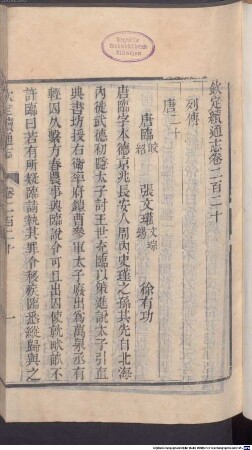 BAYERISCHE
STAATSBIBLIOTHEK
MÜNCHEN
欽定續通志卷二百二十
列傳
唐二十
唐臨 皎 紹 張文瓘 文琮 錫 徐有功
唐臨字本德京兆長安人周內史瑾之孫其先自北海
內徙武德初隱太子討王世充臨以策進說太子引直
典書坊授右衛率府鎧曹參軍太子廢出為萬泉丞有
輕囚久繫方春農事興臨說令可且出囚使就畎畝不
許臨曰若有所疑臨請執其罪令移疾臨悉縱歸與之
欽定續通志 卷二百二十 一